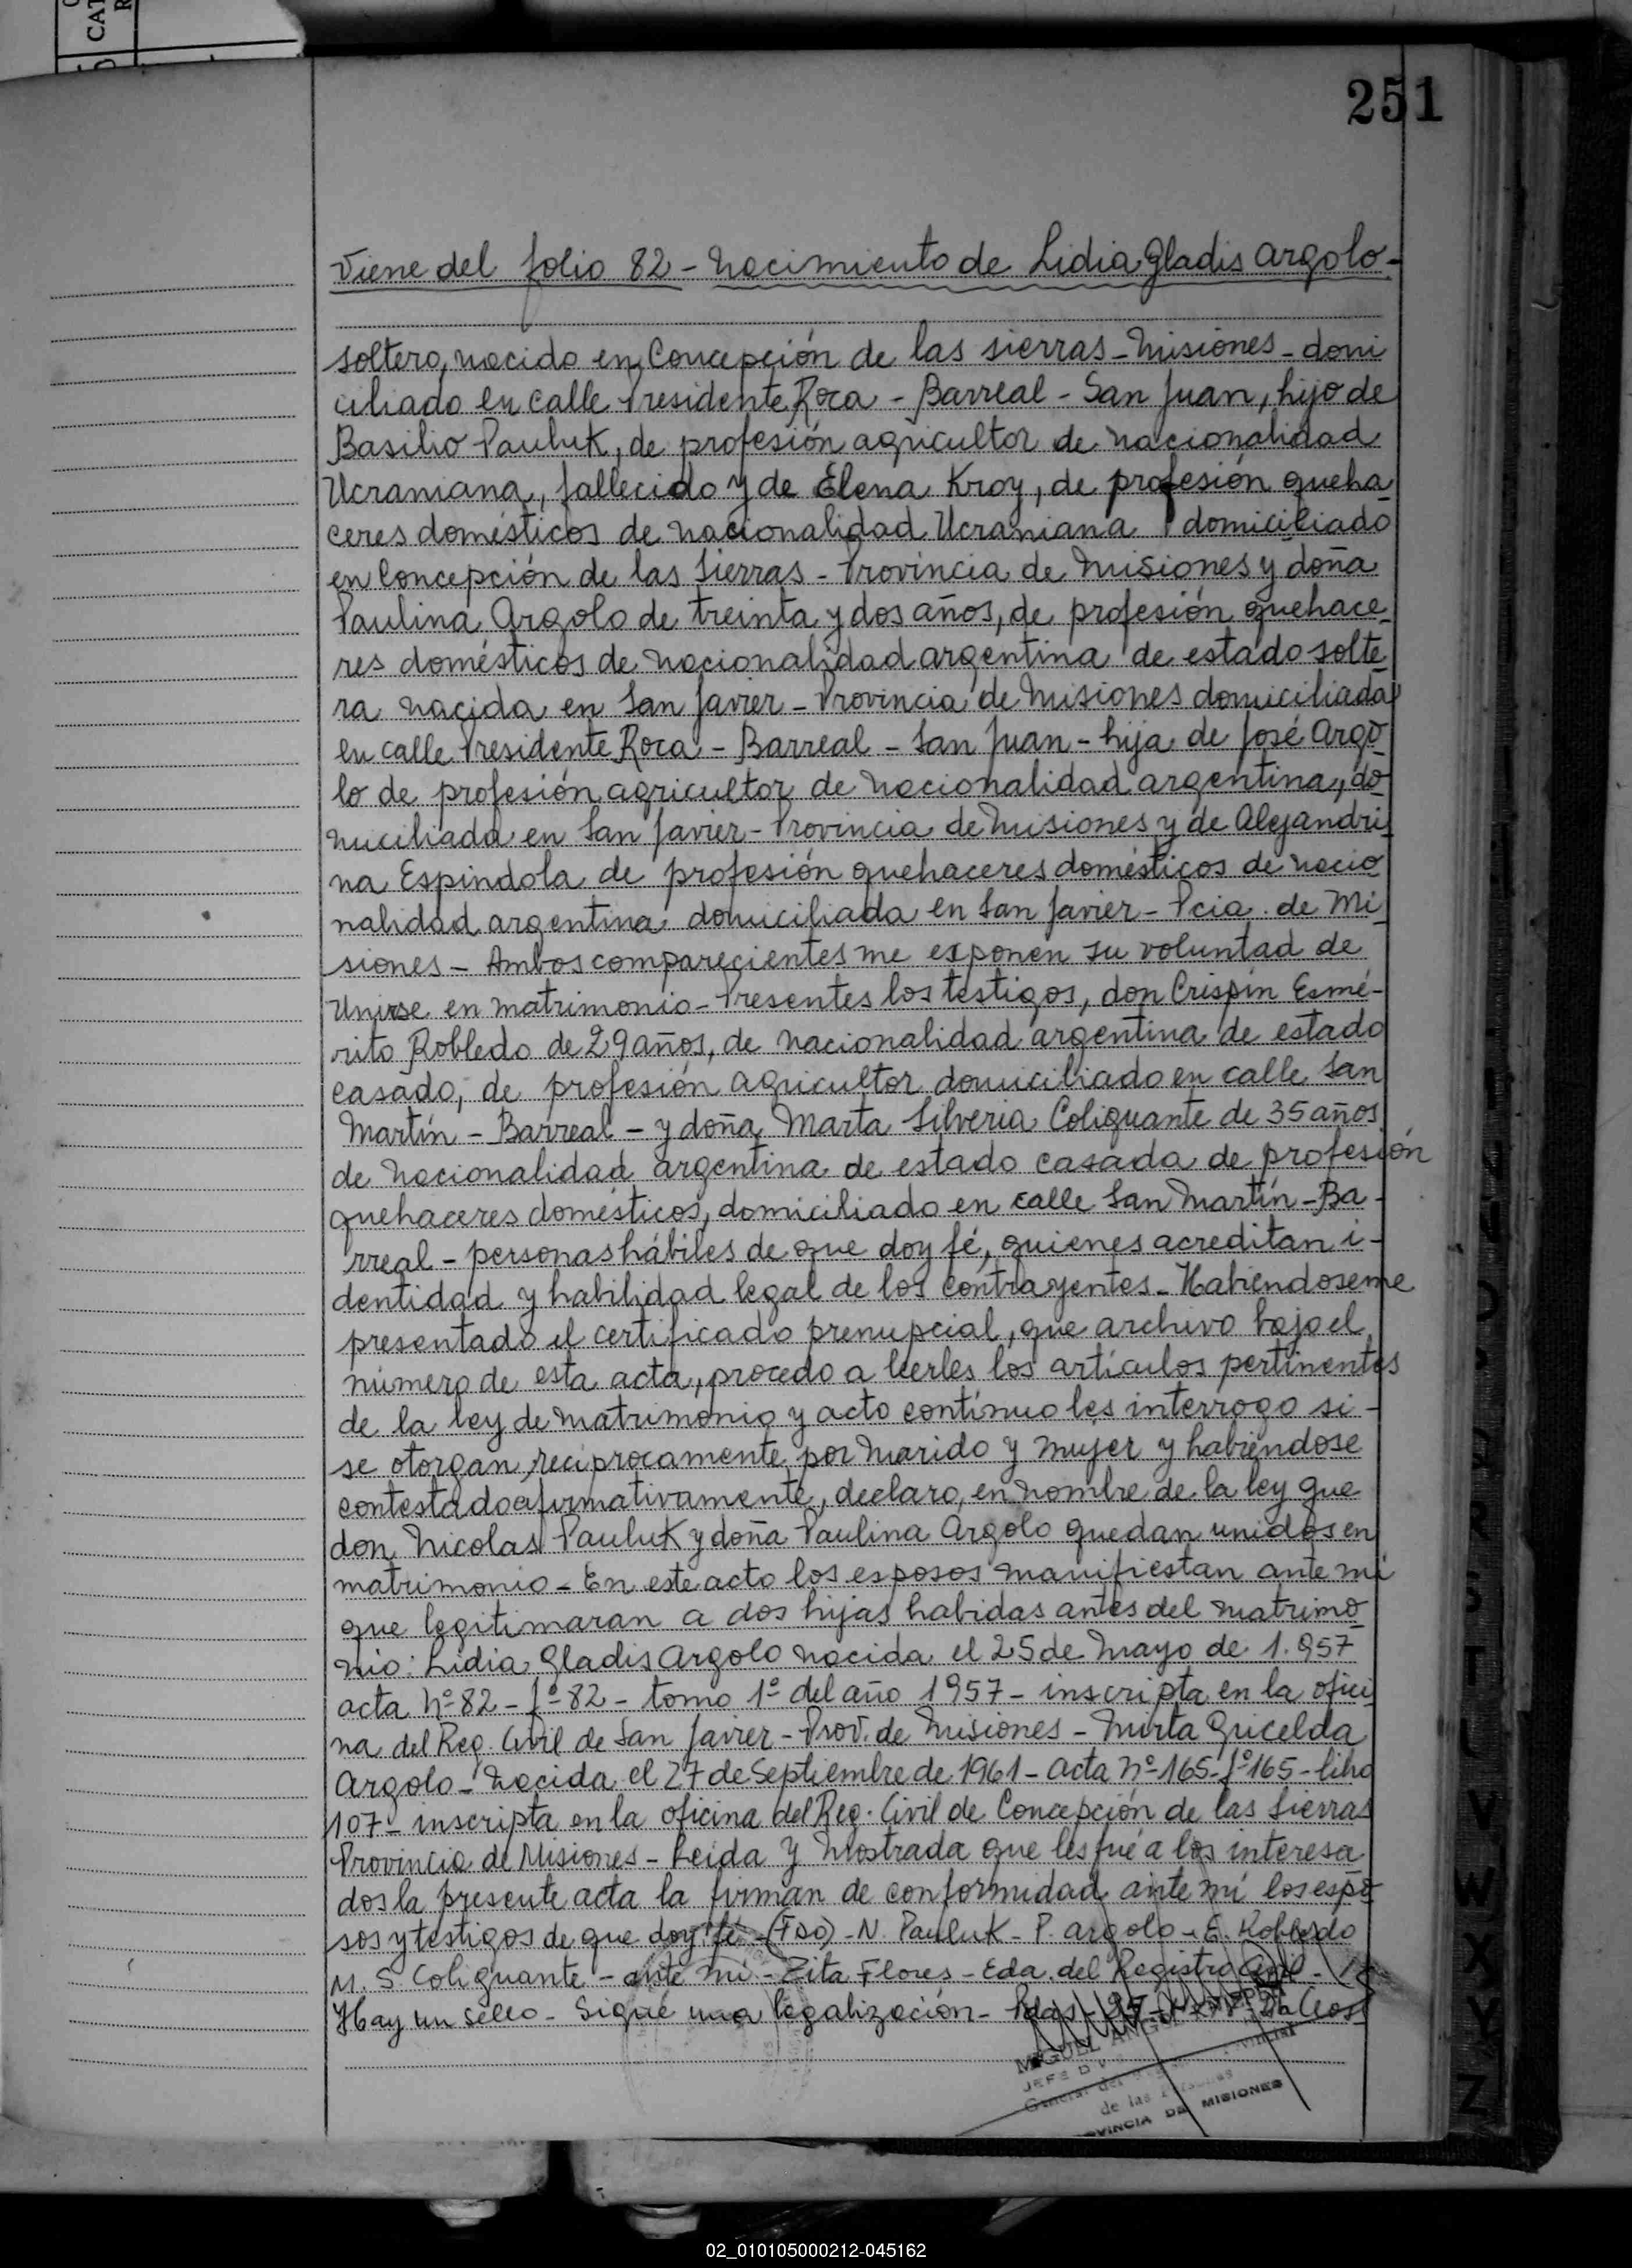 251
Viene del folio 82 - Nacimiento de Lidia Gladis Argolo -
soltero, nacido en Concepción de las Sierras - Misiones - domi
ciliado en calle Presidente Roca - Barreal - San Juan, hijo de
Basilio Pauluk, de profesión agricultor de nacionalidad
Ucraniana, fallecido y de Elena Kroy, de profesión queha
ceres domésticos de nacionalidad Ucraniana domiciliado
en Concepción de las Sierras - Provincia de Misiones y doña
Paulina Argolo de treinta y dos años, de profesión quehace
res domésticos de nacionalidad argentina de estado solte
ra nacida en San Javier - Provincia de Misiones domiciliada
en calle Presidente Roca - Barreal - San Juan - hija de José Argo
lo de profesión agricultor de nacionalidad argentina, do
miciliada en San Javier - Provincia de Misiones y de Alejandri
na Espindola de profesión quehaceres domésticos de nacio
nalidad argentina domiciliada en San Javier - Pcia. de Mi
siones - Ambos comparecientes me exponen su voluntad de
Unirse en matrimonio - Presentes los testigos, don Crispín Esmé-
rito Robledo de 29 años, de nacionalidad argentina de estado
casado, de profesión agricultor domiciliado en calle San
Martín - Barreal - y doña Marta Silveria Coliguante de 35 años
de nacionalidad argentina de estado casada de profesión
quehaceres domésticos, domiciliado en calle San Martín - Ba-
rreal - personas hábiles de que doy fé, quienes acreditan i-
dentidad y habilidad legal de los contrayentes - Habiendoseme
presentado el certificado prenupcial, que archivo bajo el
número de esta acta, procedo a leerles los artículos pertinentes
de la ley de matrimonio y acto contínuo les interrogo si -
se otorgan reciprocamente por marido y mujer y habiendose
contestado afirmativamente, declaro, en nombre de la ley que
don Nicolas Pauluk y doña Paulina Argolo quedan unidos en
matrimonio - En este acto los esposos manifiestan ante mi
que legitimaran a dos hijas habidas antes del matrimo
nio: Lidia Gladis Argolo nacida el 25 de Mayo de 1.957
acta nº 82 - fº 82 - tomo 1º del año 1957 - inscripta en la ofici
na del Reg. Civil de San Javier - Prov. de Misiones - Mirta Gricelda
Argolo - Nacida el 27 de Septiembre de 1961 - Acta nº 165 - fº 165 - libro
107 - inscripta en la oficina del Reg. Civil de Concepción de las Sierras
Provincia de Misiones - Leida y mostrada que les fué a los interesa
dos la presente acta la firman de conformidad ante mí los espo
sos y testigos de que doy fé - (Fdo) - N. Pauluk - P. Argolo - E. Robledo
M. S. Coliguante - ante mí - Zita Flores - Eda. del Registro Civil -
Hay un sello - Sigue una legalización - Pdas -
MIGUEL ANGEL
JEFE DIV
General del
de las Personas
PROVINCIA DE MISIONES
R S T U V W X Y Z
02_010105000212-045162